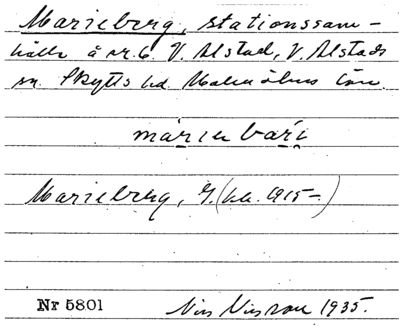 Marieberg, stationssam-
hälle å nr. 6 V. Alstad, V. Alstads
sn. Skytts hd. Malmöhus län.
Marieberg, G. (kk. 1915-)
Nr 5801
1935.